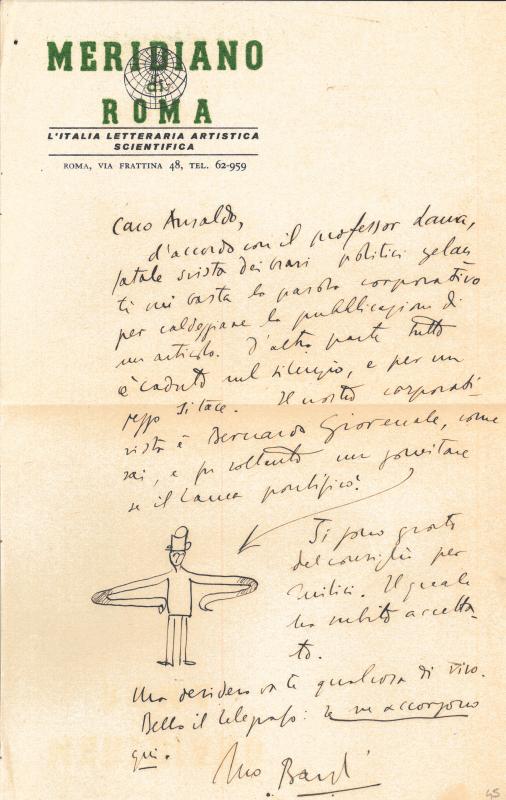 MERIDIANO
di
ROMA
L'ITALIA LETTERARIA ARTISTICA
SCIENTIFICA
ROMA, VIA FRATTINA 48, TEL. 62-959
Caro Ansaldo,
d'accordo con il professor Lanna,
fatale svista dei politici
ti mi basta la parola corporativo
per caldeggiare la pubblicazione di
un articolo. D'altra parte tutto
è caduto nel silenzio, e per un
si tace. Il nostro corporati-
vista è Bernardo Giovenale, come
sai, e fu soltanto un
se il Lanna pontificò?
Ti sono grato
del consiglio per
Il quale
ha subito accetta-
to.
Ma desidero da te qualcosa di vivo.
Bello il telegrafo: se ne accorgono
qui.
Tuo Bardi
45